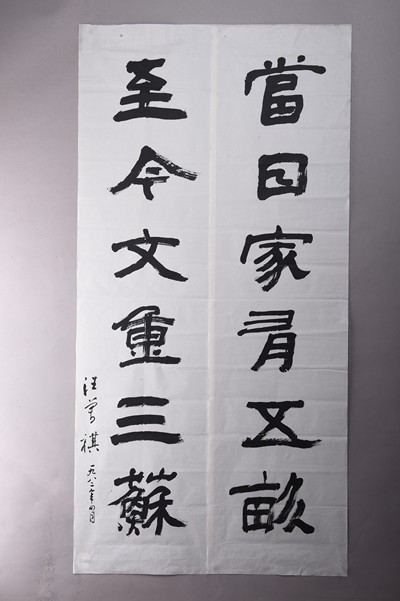 當日家有五畝
至今文重三蘇
汪曾祺
一九八二年四月